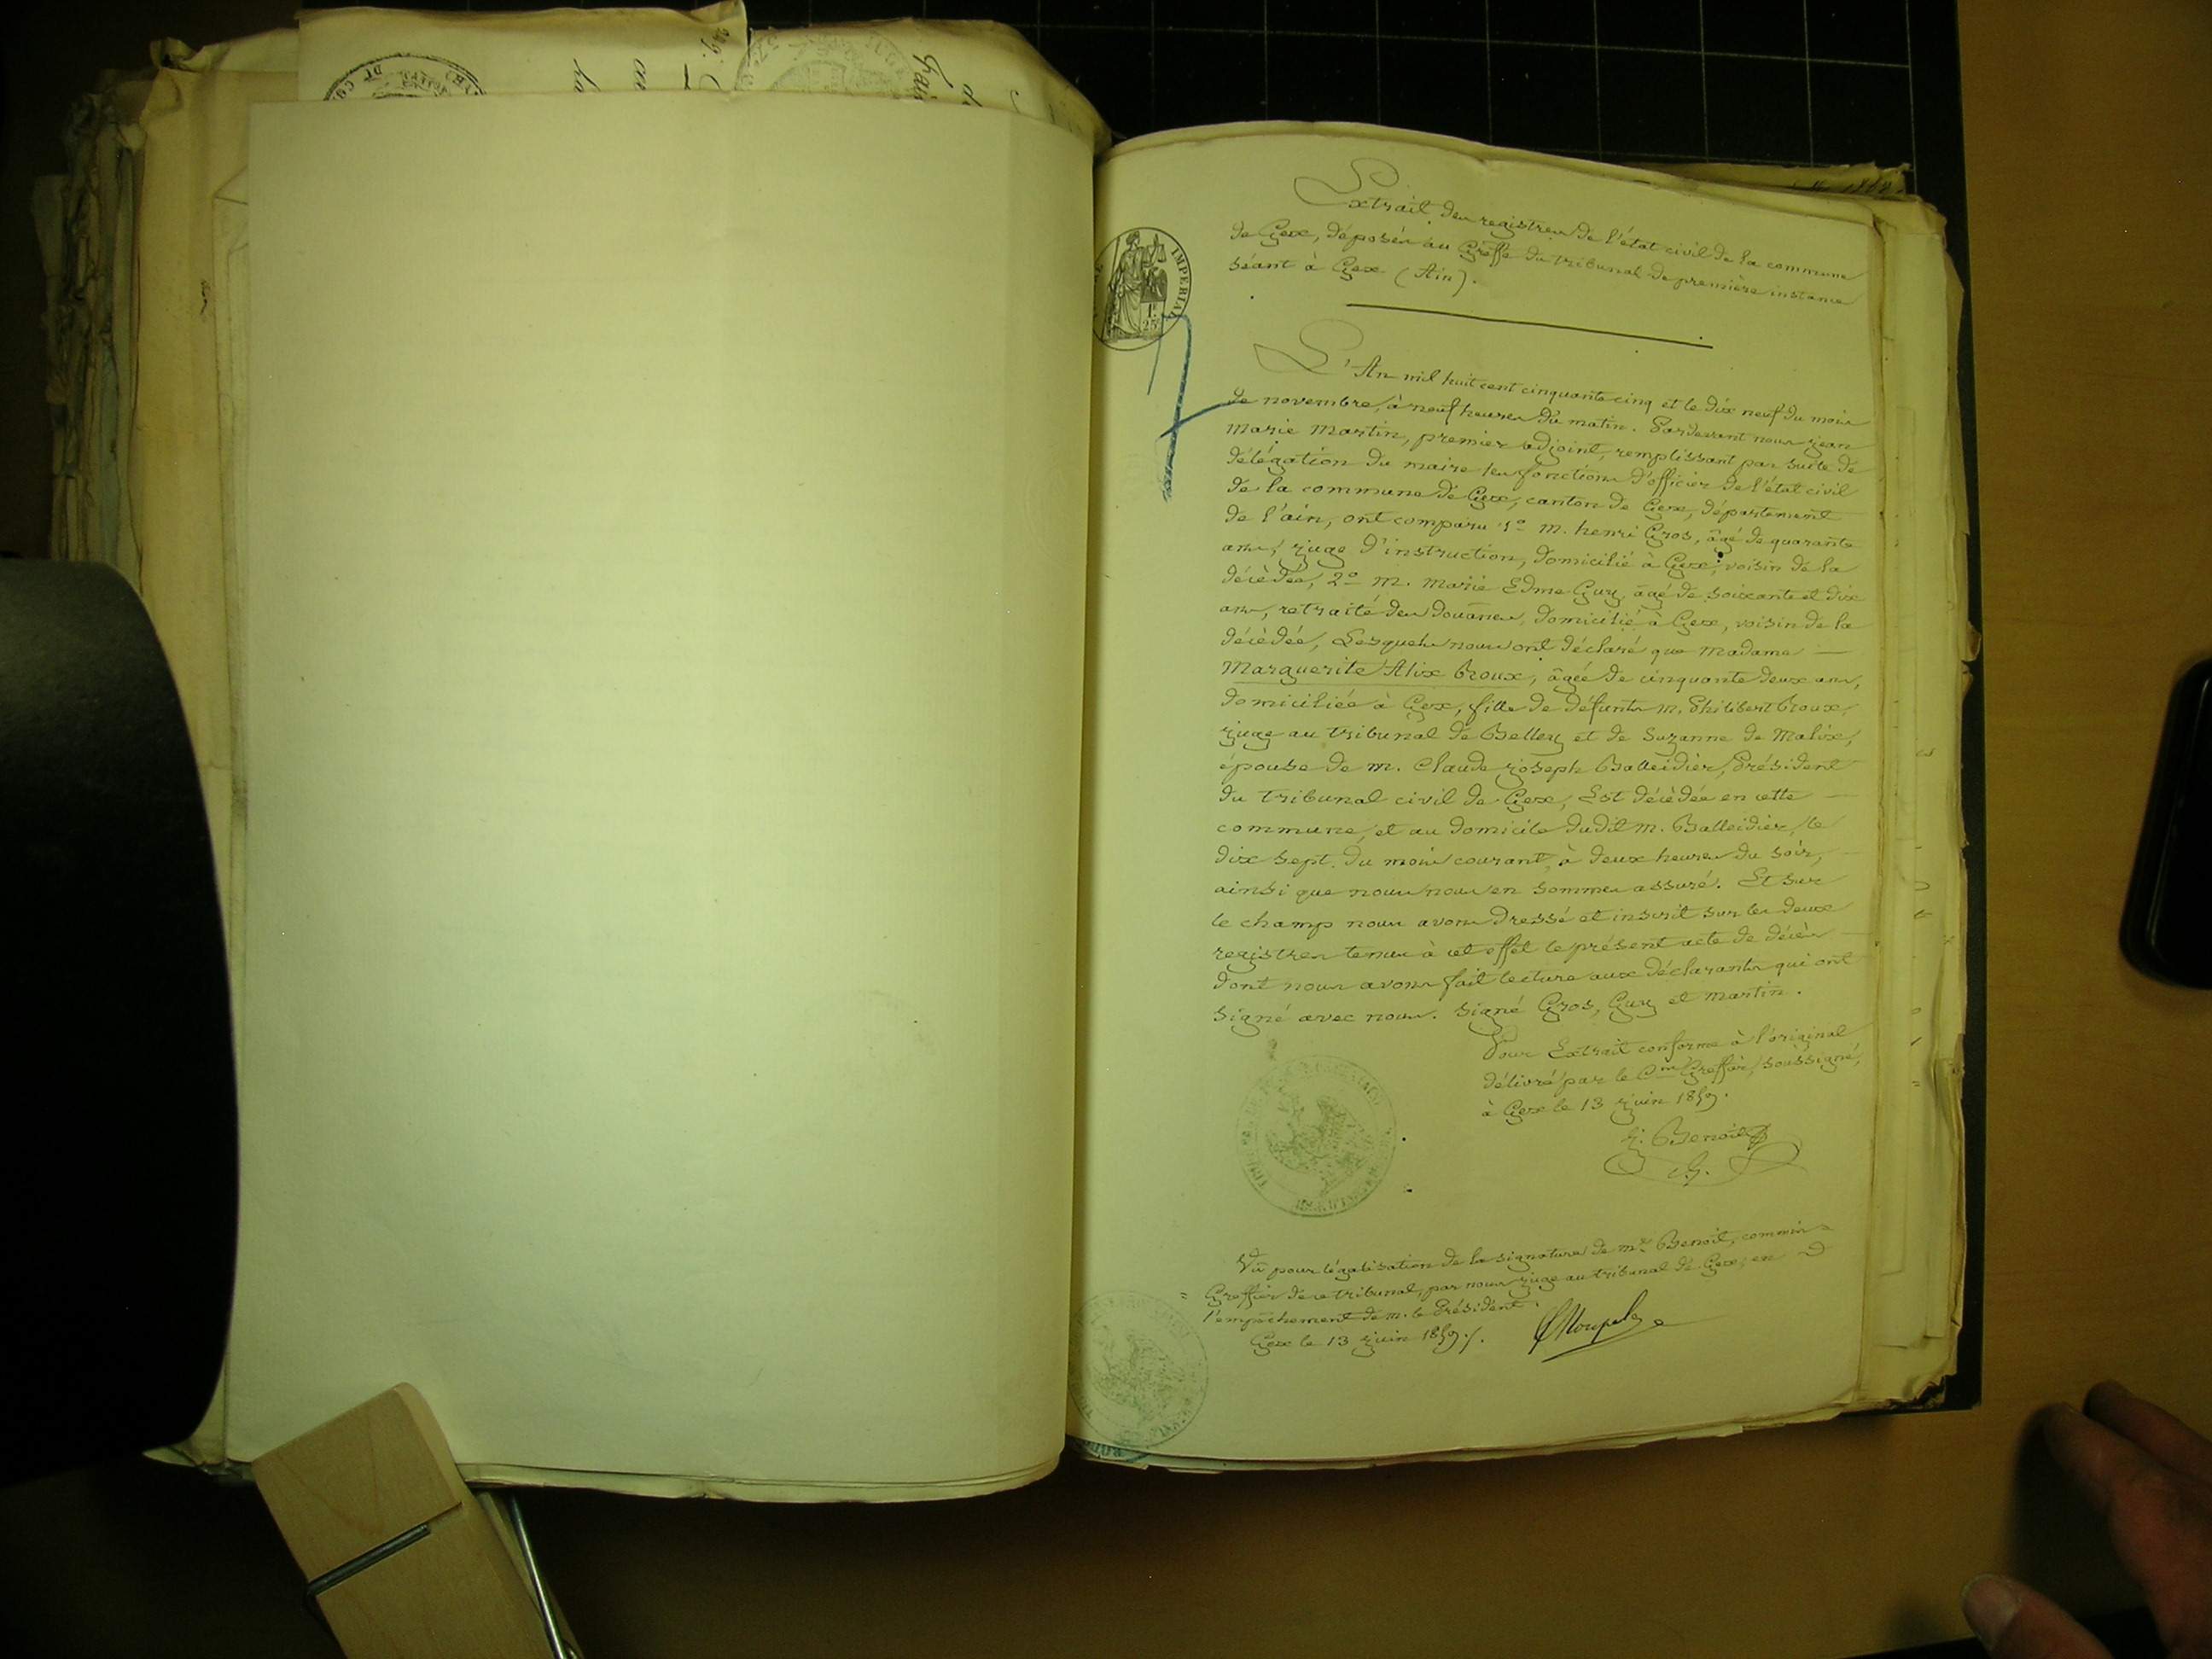 Extrait des registres de l'état civil de la commune
de Gex, déposés au Greffe du tribunal de première instance
séant à Gex (Ain).
IMPERIAL
1 f.
25 c
L'An mil huit cent cinquante cinq et le dix neuf du mois
de novembre, à neuf heures du matin. Pardevant nous jean
marie martin, premier adjoint, remplissant par suite de
délégation du maire les fonctions d'officier de l'état civil
de la commune de Gex, canton de Gex, département
de l'ain, ont comparu 1º m. henri Gros, âgé de quarante
ans, juge d'instruction, domicilié à Gex, voisin de la
décèdée, 2º m. marie Edme Guy, âgé de soixante et dix
ans, retraité des douanes, domicilié à Gex, voisin de la
décèdée, Lesquels nous ont déclaré que madame
Marguerite Alix Croux, âgée de cinquante deux ans,
domiciliée à Gex, fille de défunts m. Philibert Croux,
juge au tribunal de Belley et de Suzanne de Malix,
épouse de m. Claude joseph Balleidier, Président
du tribunal civil de Gex, Est décèdée en cette
commune, et au domicile dudit m. Balleidier, le
dix sept du mois courant, à deux heures du soir,
ainsi que nous nous en sommes assuré. Et sur
le champ nous avons dressé et inscrit sur les deux
registres tenus à cet effet le présent acte de décès
dont nous avons fait lecture aux déclarants qui ont
signé avec nous. signé Gros, Guy et martin.
Pour Extrait conforme à l'original
délivré par le Cms Greffier, soussigné,
à Gex le 13 juin 1859.
j. Benoit
Vu pour légalisation de la signature de mr Benoit, commis
Greffier de ce tribunal, par nous juge au tribunal de Gex, en
l'empêchement de m. le Président.
Gex le 13 juin 1859./.